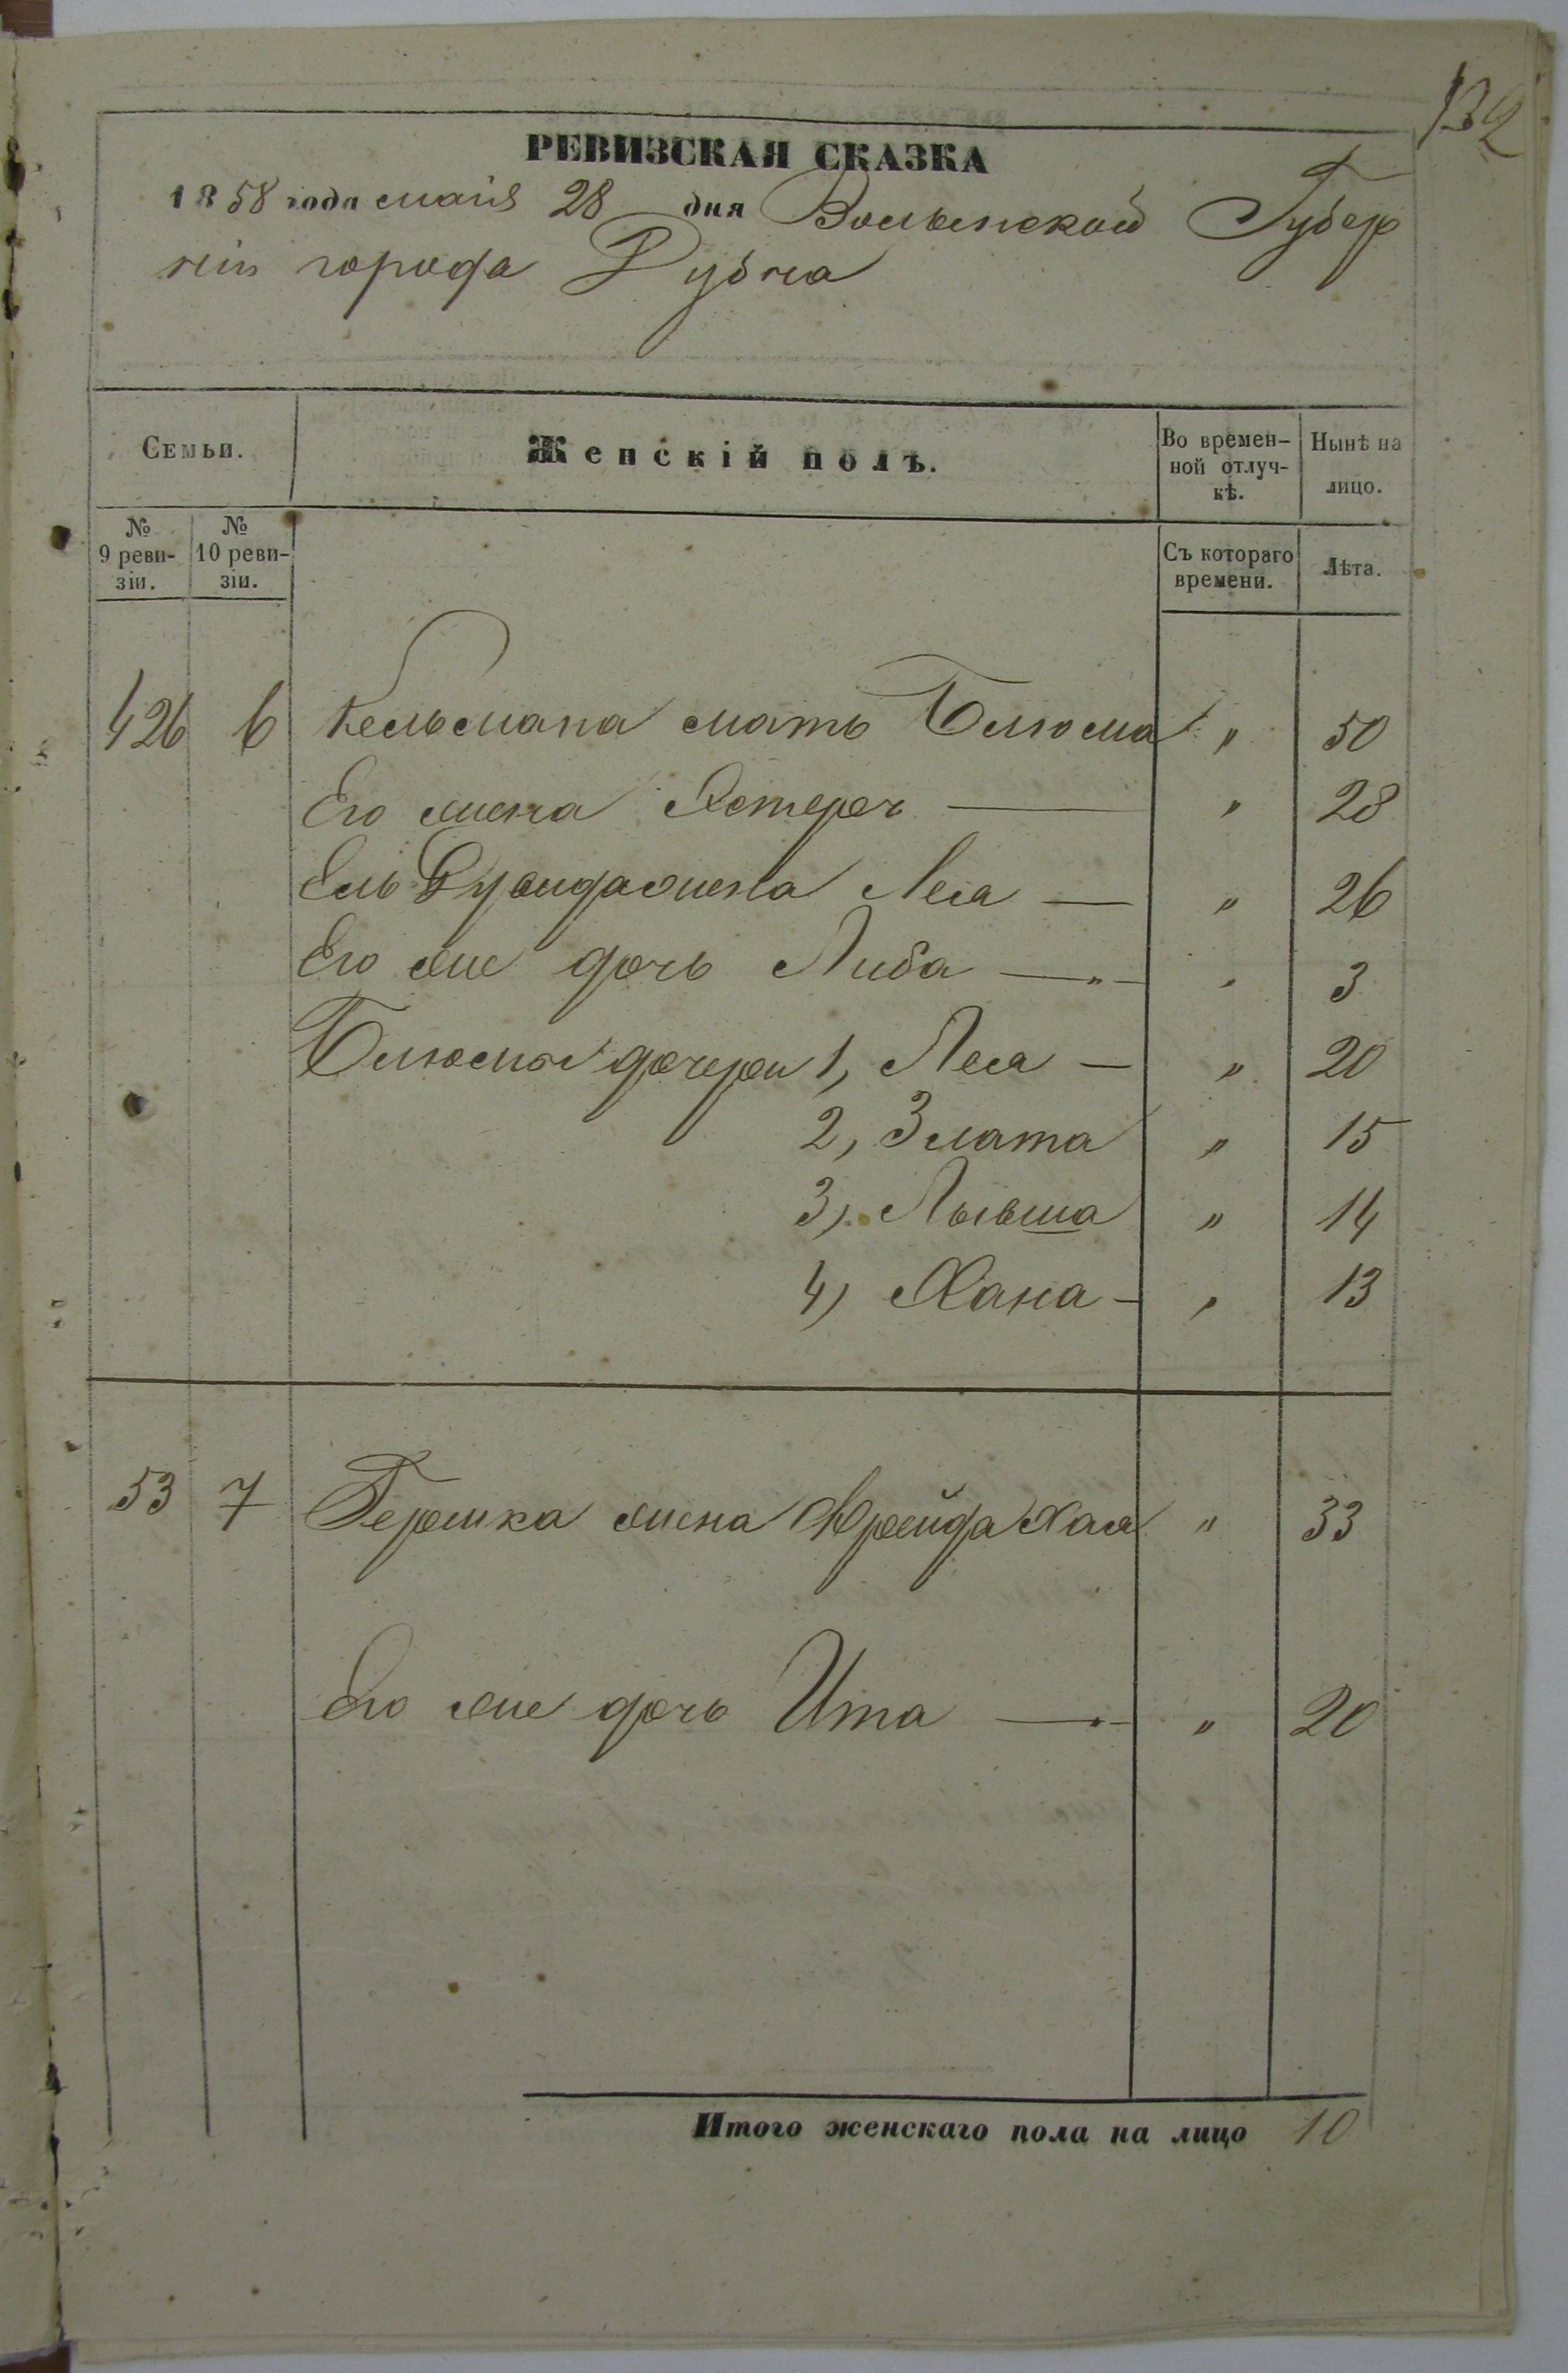 132
РЕВИЗСКАЯ СКАЗКА
1858 года маія 28 дня Волынской Губер
ніи города Дубна
Семьи. Женскій полъ. Во времен- Нынѣ на
ной отлуч- лицо.
кѣ.
№ № Съ котораго Лѣта.
9 реви- 10 реви- времени.
зіи. зіи.
426 6 Кельмана мать Блюма " 50
Его жена Естеръ — " 28
Ель жена Леа — " 26
Его же дочь Либа — " 3
Блюмы дочери 1, Леа — " 20
2, Злата " 15
3, " 14
4, Хана — " 13
53 7 Гершка жена Фрейда Хая " 33
Его же дочь Ита — " 20
Итого женскаго пола на лицо 10